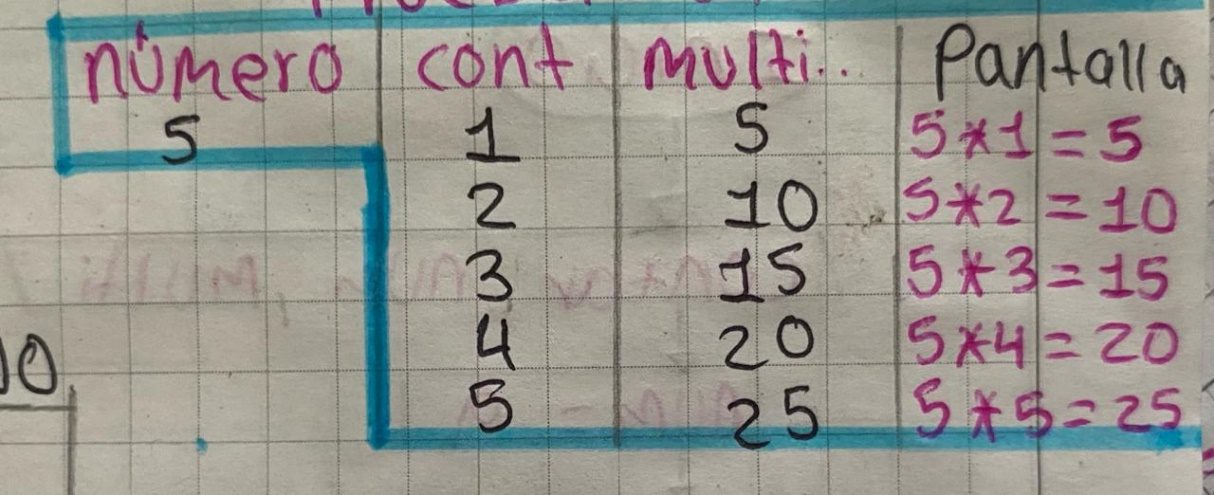 número cont multi.. Pantalla
5 1 5 5*1=5
2 10 5*2=10
3 15 5*3=15
4 20 5*4=20
5 25 5*5=25